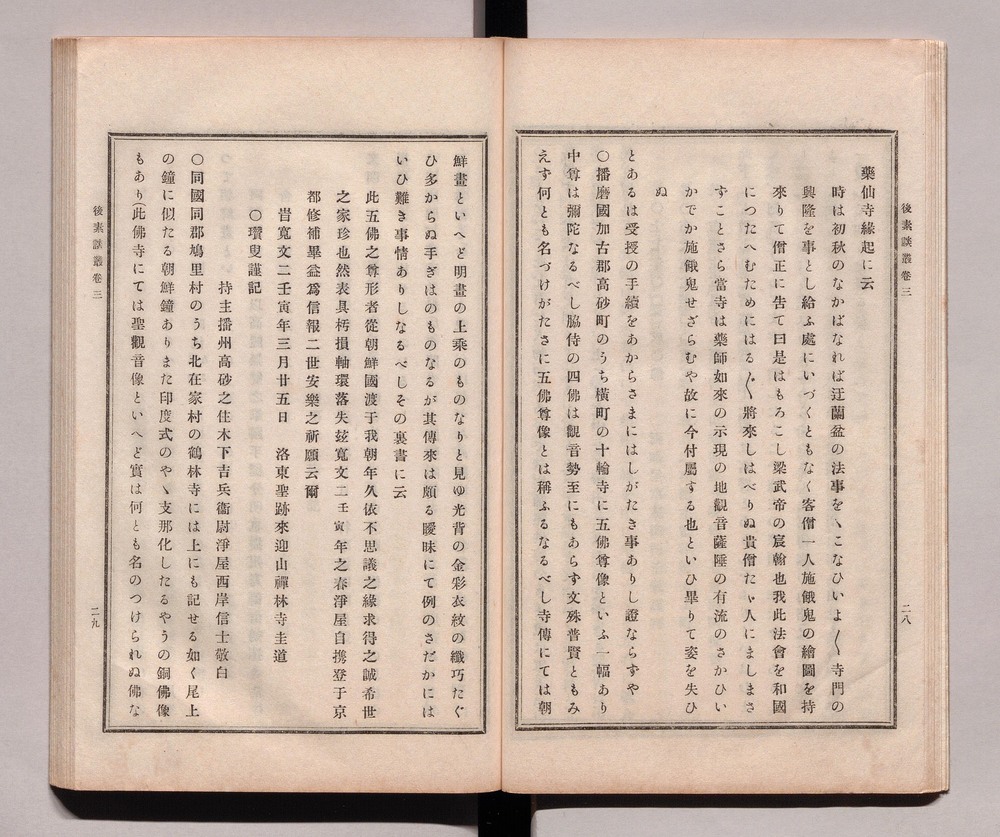 後素談叢卷三
二八
藥仙寺緣起に云
時は初秋のなかばなれば迂蘭盆の法事をゝこなひいよ〳〵寺門の
興隆を事とし給ふ處にいづくともなく客僧一人施餓鬼の繪圖を持
來りて僧正に告て曰是はもろこし梁武帝の宸翰也我此法會を和國
につたへむためにはる〴〵將來しはべりぬ貴僧たゞ人にましまさ
すことさら當寺は藥師如來の示現の地觀音薩陲の有流のさかひい
かでか施餓鬼せざらむや故に今付屬する也といひ畢りて姿を失ひ
ぬ
とあるは受授の手續をあからさまにはしがたき事ありし證ならずや
〇播磨國加古郡高砂町のうち橫町の十輪寺に五佛尊像といふ一幅あり
中尊は彌陀なるべし脇侍の四佛は觀音勢至にもあらす文殊普賢ともみ
えす何とも名づけがたさに五佛尊像とは稱ふるなるべし寺傳にては朝
鮮畫といへど明畫の上乘のものなりと見ゆ光背の金彩衣紋の纖巧たぐ
ひ多からぬ手ぎはのものなるが其傳來は頗る曖昧にて例のさだかには
いひ難き事情ありしなるべしその裏書に云
此五佛之尊形者從朝鮮國渡于我朝年久依不思議之緣求得之誠希世
之家珍也然表具朽損軸環落失玆寬文二壬寅年之春淨屋自携登于京
都修補畢益爲信報二世安樂之祈願云爾
旹寬文二壬寅年三月廿五日 洛東聖跡來迎山禪林寺圭道
〇瓚叟謹記
持主播州高砂之住木下吉兵衞尉淨屋西岸信士敬白
〇同國同郡鳩里村のうち北在家村の鶴林寺には上にも記せる如く尾上
の鐘に似たる朝鮮鐘ありまた印度式のやゝ支那化したるやうの銅佛像
もあり(此佛寺にては聖觀音像といへど實は何とも名のつけられぬ佛な
後素談叢卷三
二九